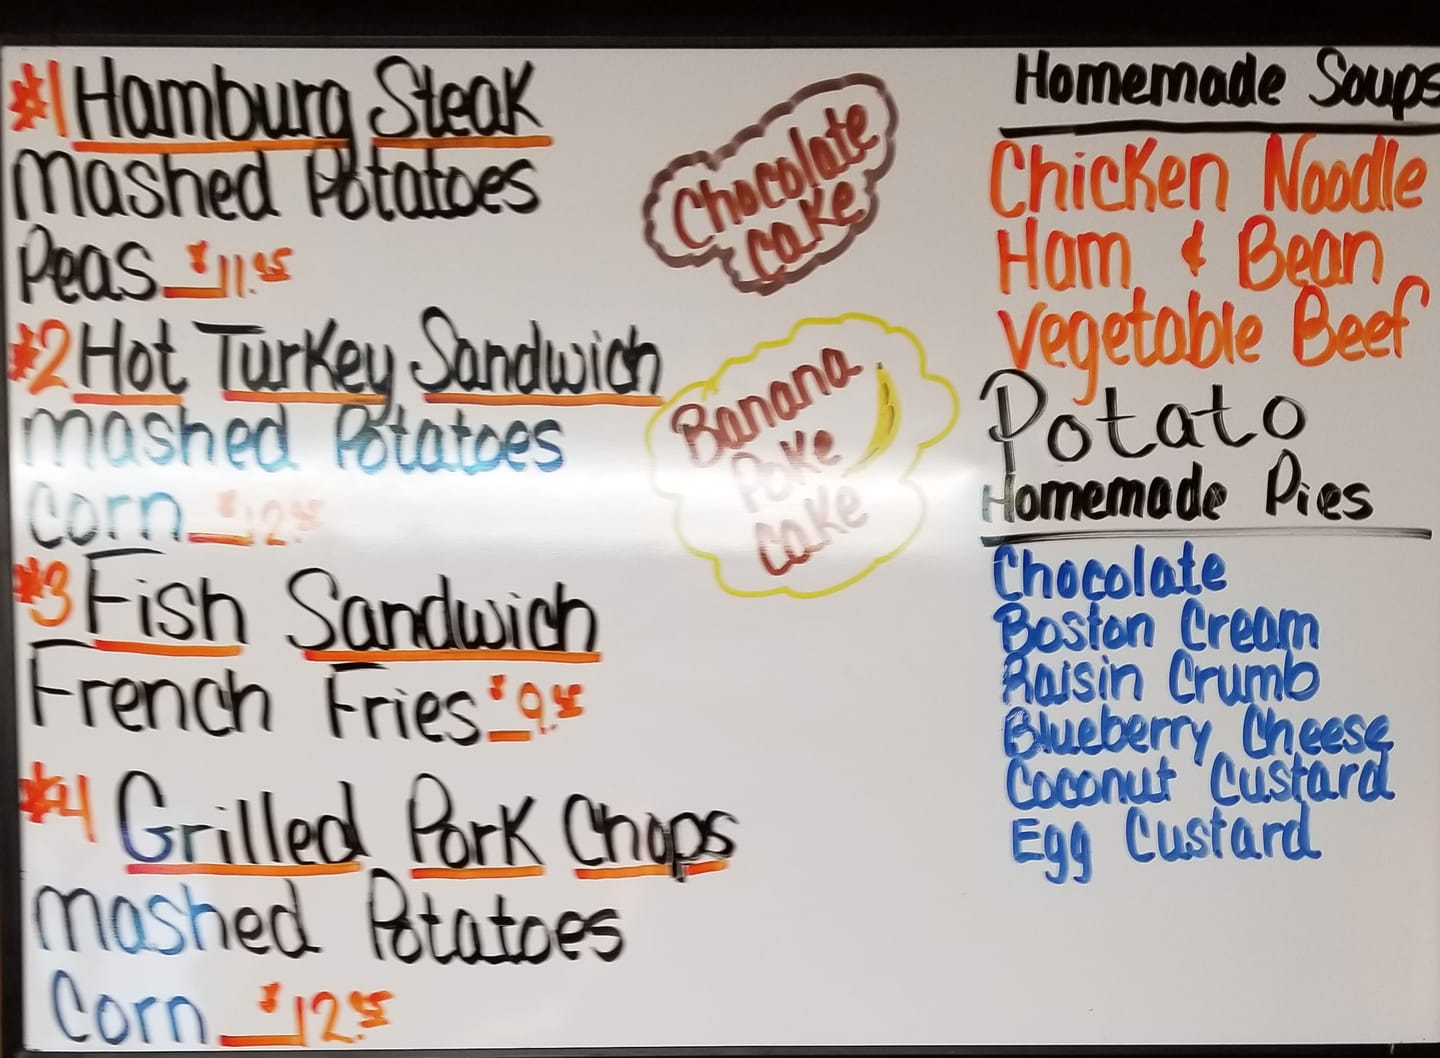 #1 Hamburg Steak
Mashed Potatoes
Peas
#2 Hot Turkey Sandwich
Mashed Potatoes
Corn
#3 Fish Sandwich
French Fries
#4 Grilled Pork Chops
Mashed Potatoes
Corn
Chocolate
Cake
Banana
Poke
Cake
Homemade Soups
Chicken Noodle
Ham & Bean
Vegetable Beef
Potato
Homemade Pies
Chocolate
Boston Cream
Raisin Crumb
Blueberry Cheese
Coconut Custard
Egg Custard